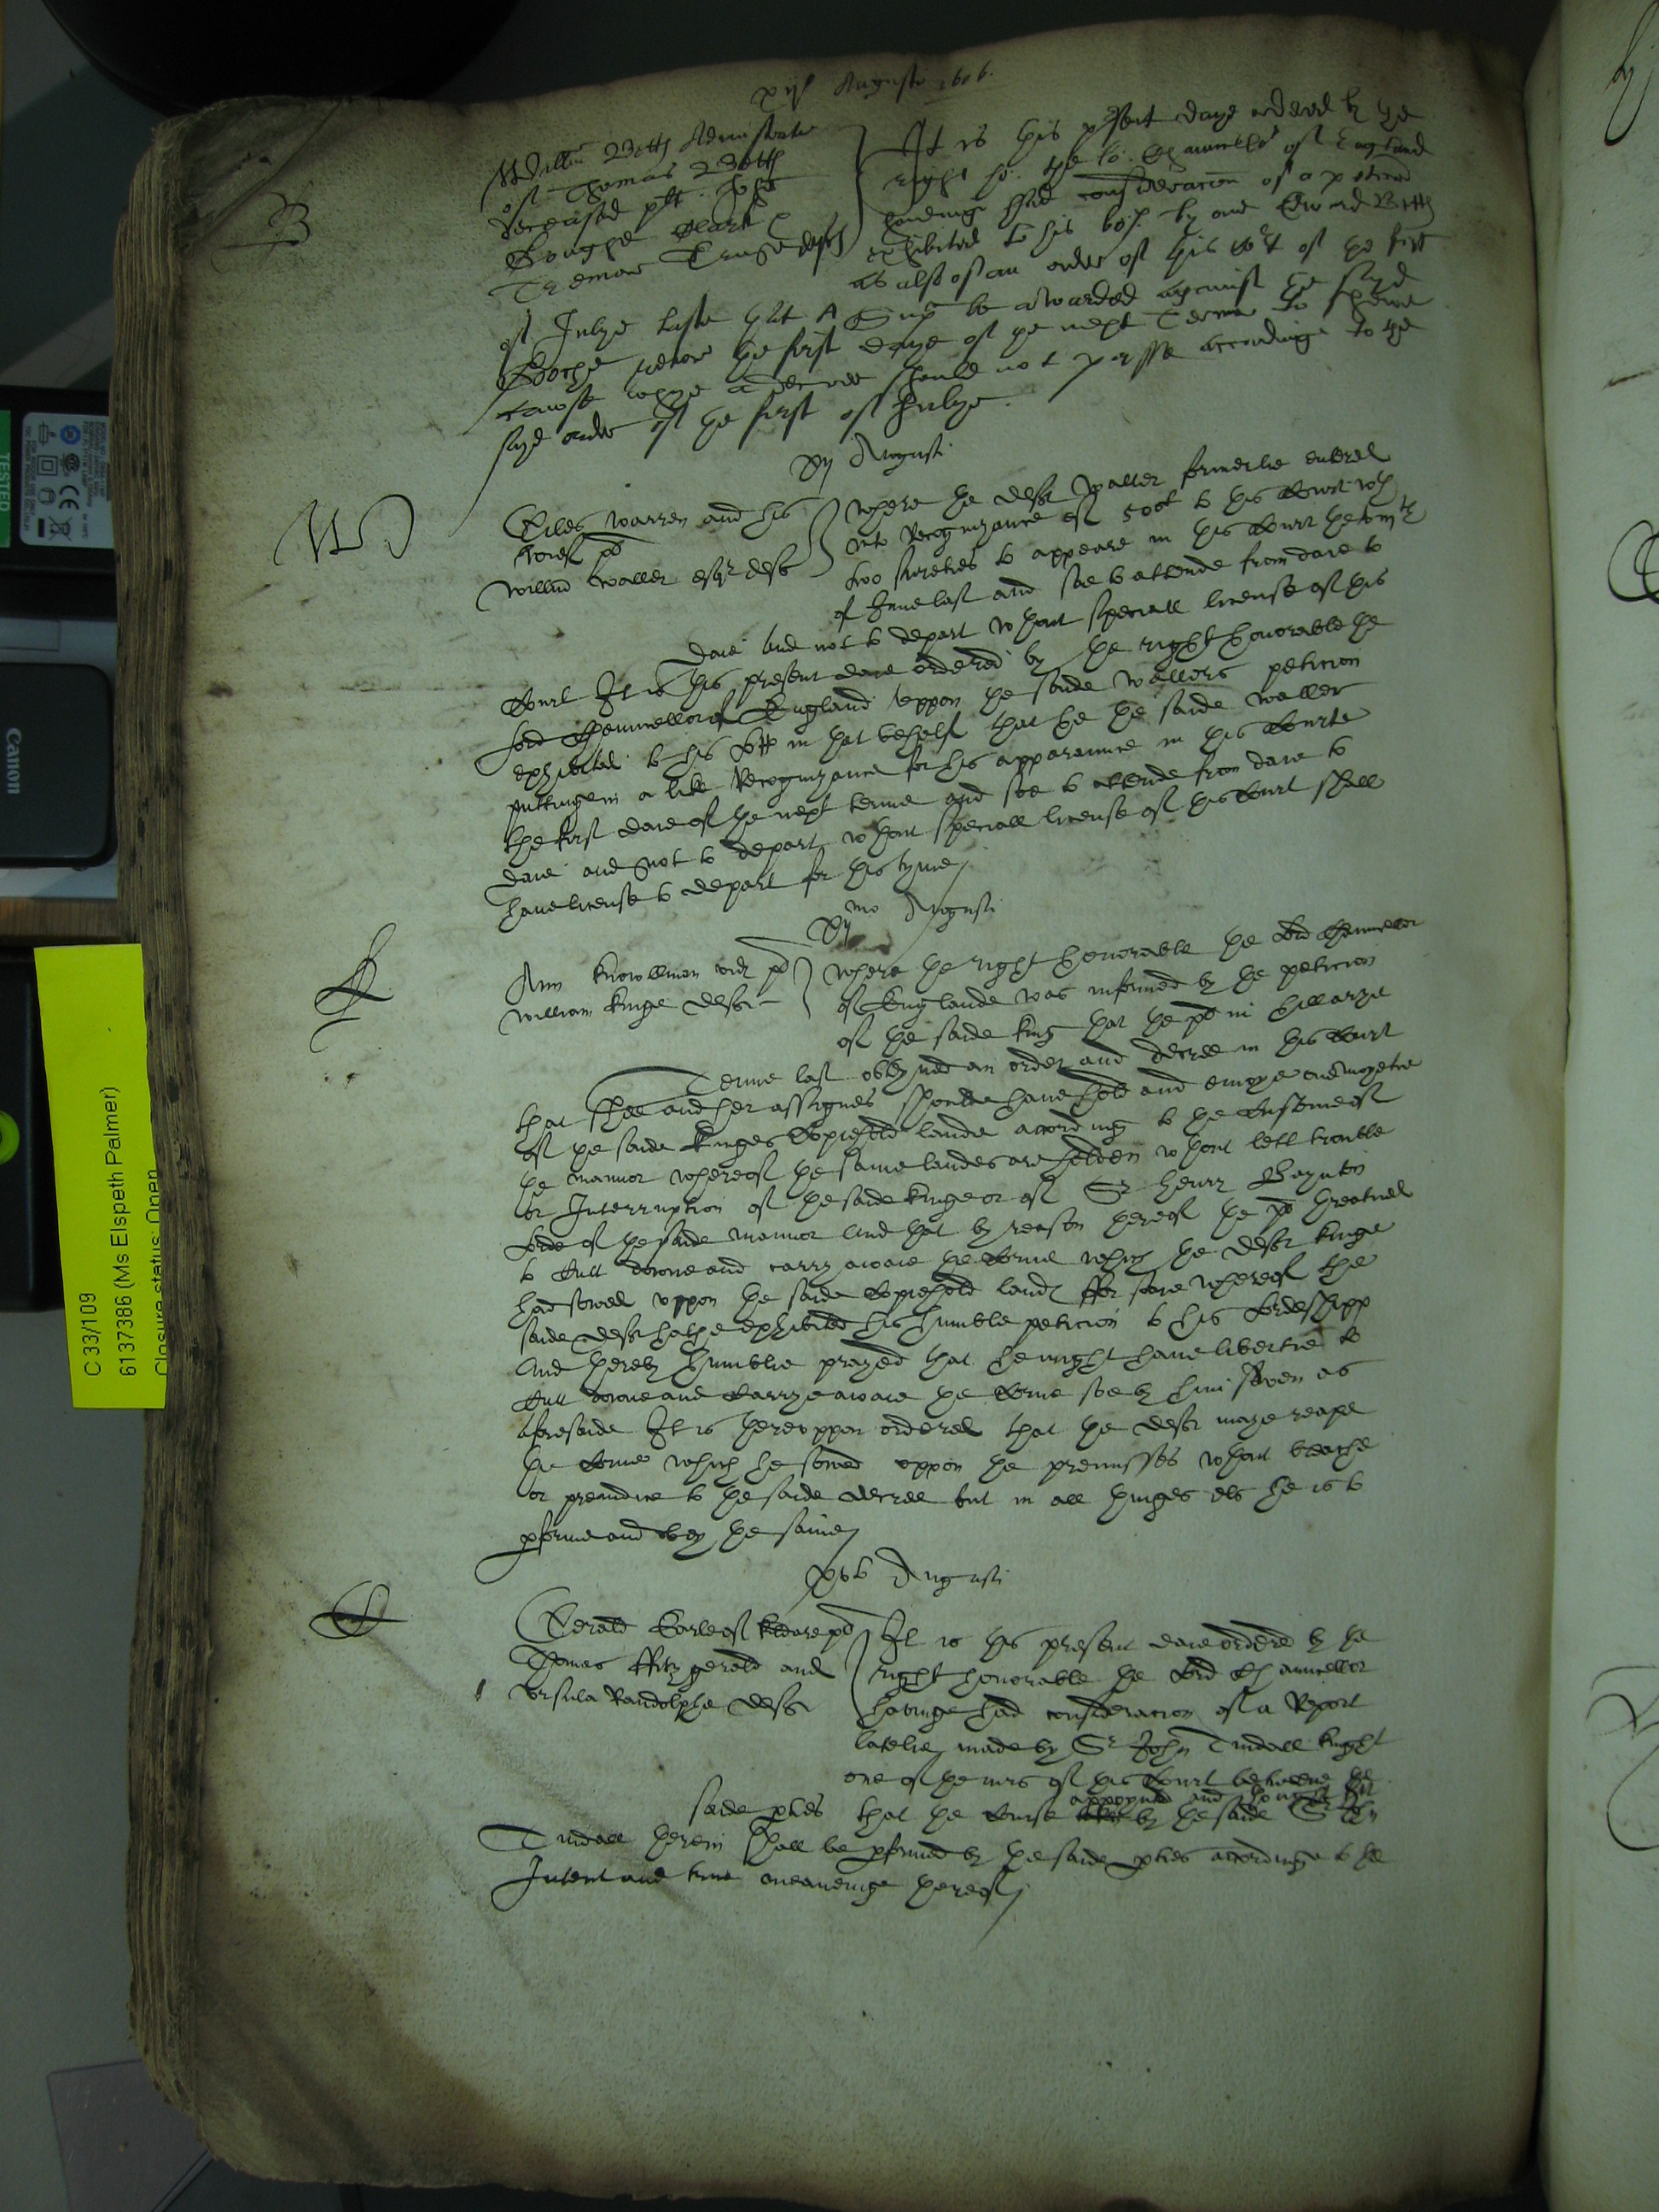 xiij Augusti 1606.
B
Willm Betth Administrator
of Thomas Betth
deceased plt. John
Boughe Clark
Tremor deftes
It is this psent daye ordered by the
right ho: the lo: Chauncellor of England
havinge had consideracion of a peticion
exhibited to his lop. by one Edward Betth
as also of an order of this Cort of the first
of Julye laste that A Sup be awarded against the sayd
Boughe retor the first daye of the next Terme to shewe
cawse whye a decree should not passe accordinge to the
sayd order of the first of Julye.
xij Augusti
W
Giles warren and his
wief pl
Willm Waller esqr deft
where the deft Waller formerlie entered
into Recognizance of 500l to this Court wth
two suerties to appeare in this Court the
of June last and soe to attende from daie to
daie and not to depart wthout speciall license of this
Court It is this present daie ordered by the right honorable the
lord Chauncellor of England uppon the saide Wallers peticion
exhibited to his lpp in that behalf that he the saide Waller
puttinge in a like Recognizance for his apparaunce in this Courte
the first daie of the next terme and soe to attende from daie to
daie and not to depart wthout speciall license of this Court shall
have license to depart for this tyme
xijmo Augusti
K
Ann Knowllman vid pl
William Kinge deft
where the right honorable the Lord Chauncellor
of Englande was informed by the peticion
of the saide King that the pl in Hillarye
Terme last obteyned an order and decree in this Court
that shee and her assignes shoulde have hold and enioye one moyetie
of the saide Kinges Copiehold lande according to the Custome of
the mannor whereof the same landes are holden wthout lett trouble
or Interruption of the saide Kinge or of Sr Henry Boynton
lorde of the saide mannor And that by reason thereof the pl threatned
to Cutt downe and carry awaie the Corne which the deft Kinge
had sowed uppon the saide Copiehold land ffor staie whereof the
saide deft hathe exhibited his humble peticion to his Lordeshipp
And thereby humblie prayed that he might have libertie to
Cutt downe and Carrye awaie the Corne soe by him sowen as
aforesaide It is thereuppon ordered that the deft maye reape
the Corne which he sowed uppon the premisses wthout breache
or preiudice to the saide decree but in all thinges els he is to
pforme and obey the same
xvto Augusti
Gerald Earle of Kildare pl
Thomas ffitzgerald and
Ursula Randolphe deftes
It is this present daie ordered by the
right honorable the Lord Chauncellor
havinge had consideracion of a Report
latelie made by Sr John Tindall knight
one of the mrs of this Court betweene the
saide pties that the Course appoynted and by the saide Sr John
Tindall therein shall be pformed by the saide pties accordinge to the
Intent and true meaninge thereof
C 33/109
6137386 (Ms Elspeth Palmer)
Closure status: Open
Canon
TESTED